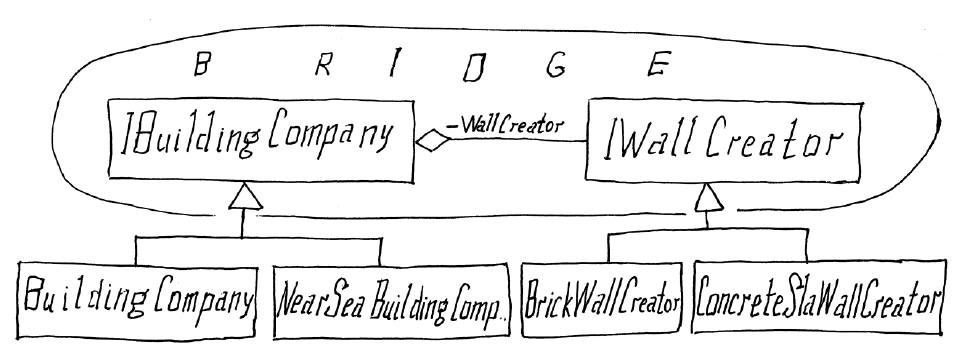 BRIDGE
IBuildingCompany
-WallCreator
IWallCreator
BuildingCompany
NearSeaBuildingComp..
BrickWallCreator
ConcreteSlaWallCreator